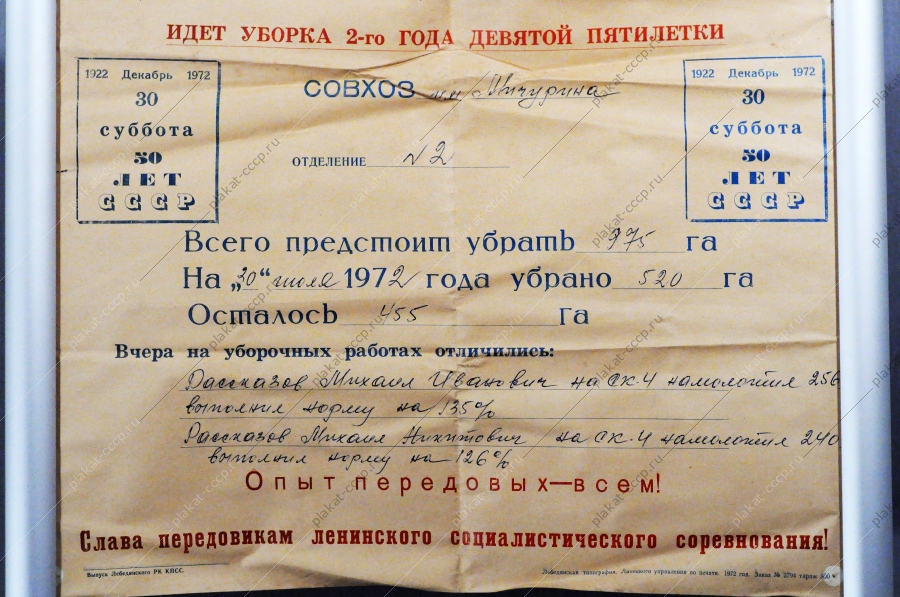 ИДЕТ УБОРКА 2-го ГОДА ДЕВЯТОЙ ПЯТИЛЕТКИ
1922 Декабрь 1972
30
суббота
50
ЛЕТ
СССР
СОВХОЗ им Мичурина
ОТДЕЛЕНИЕ №2
1922 Декабрь 1972
30
суббота
50
ЛЕТ
СССР
Всего предстоит убрать 975 га
На „20“ июля 1972 года убрано 520 га
Осталось 455 га
Вчера на уборочных работах отличились:
Рассказов Михаил Иванович на СК-4 намолотил 256
выполнил норму на 135%
Рассказов Михаил Никитович на СК-4 намолотил 240
выполнил норму на 126%
Опыт передовых—всем!
Слава передовикам ленинского социалистического соревнования!
Выпуск Лебедянского РК КПСС.
Лебедянская типография. Липецкого управления по печати. 1972 год. Заказ № 2794 тираж 300
plakat-cccp.ru